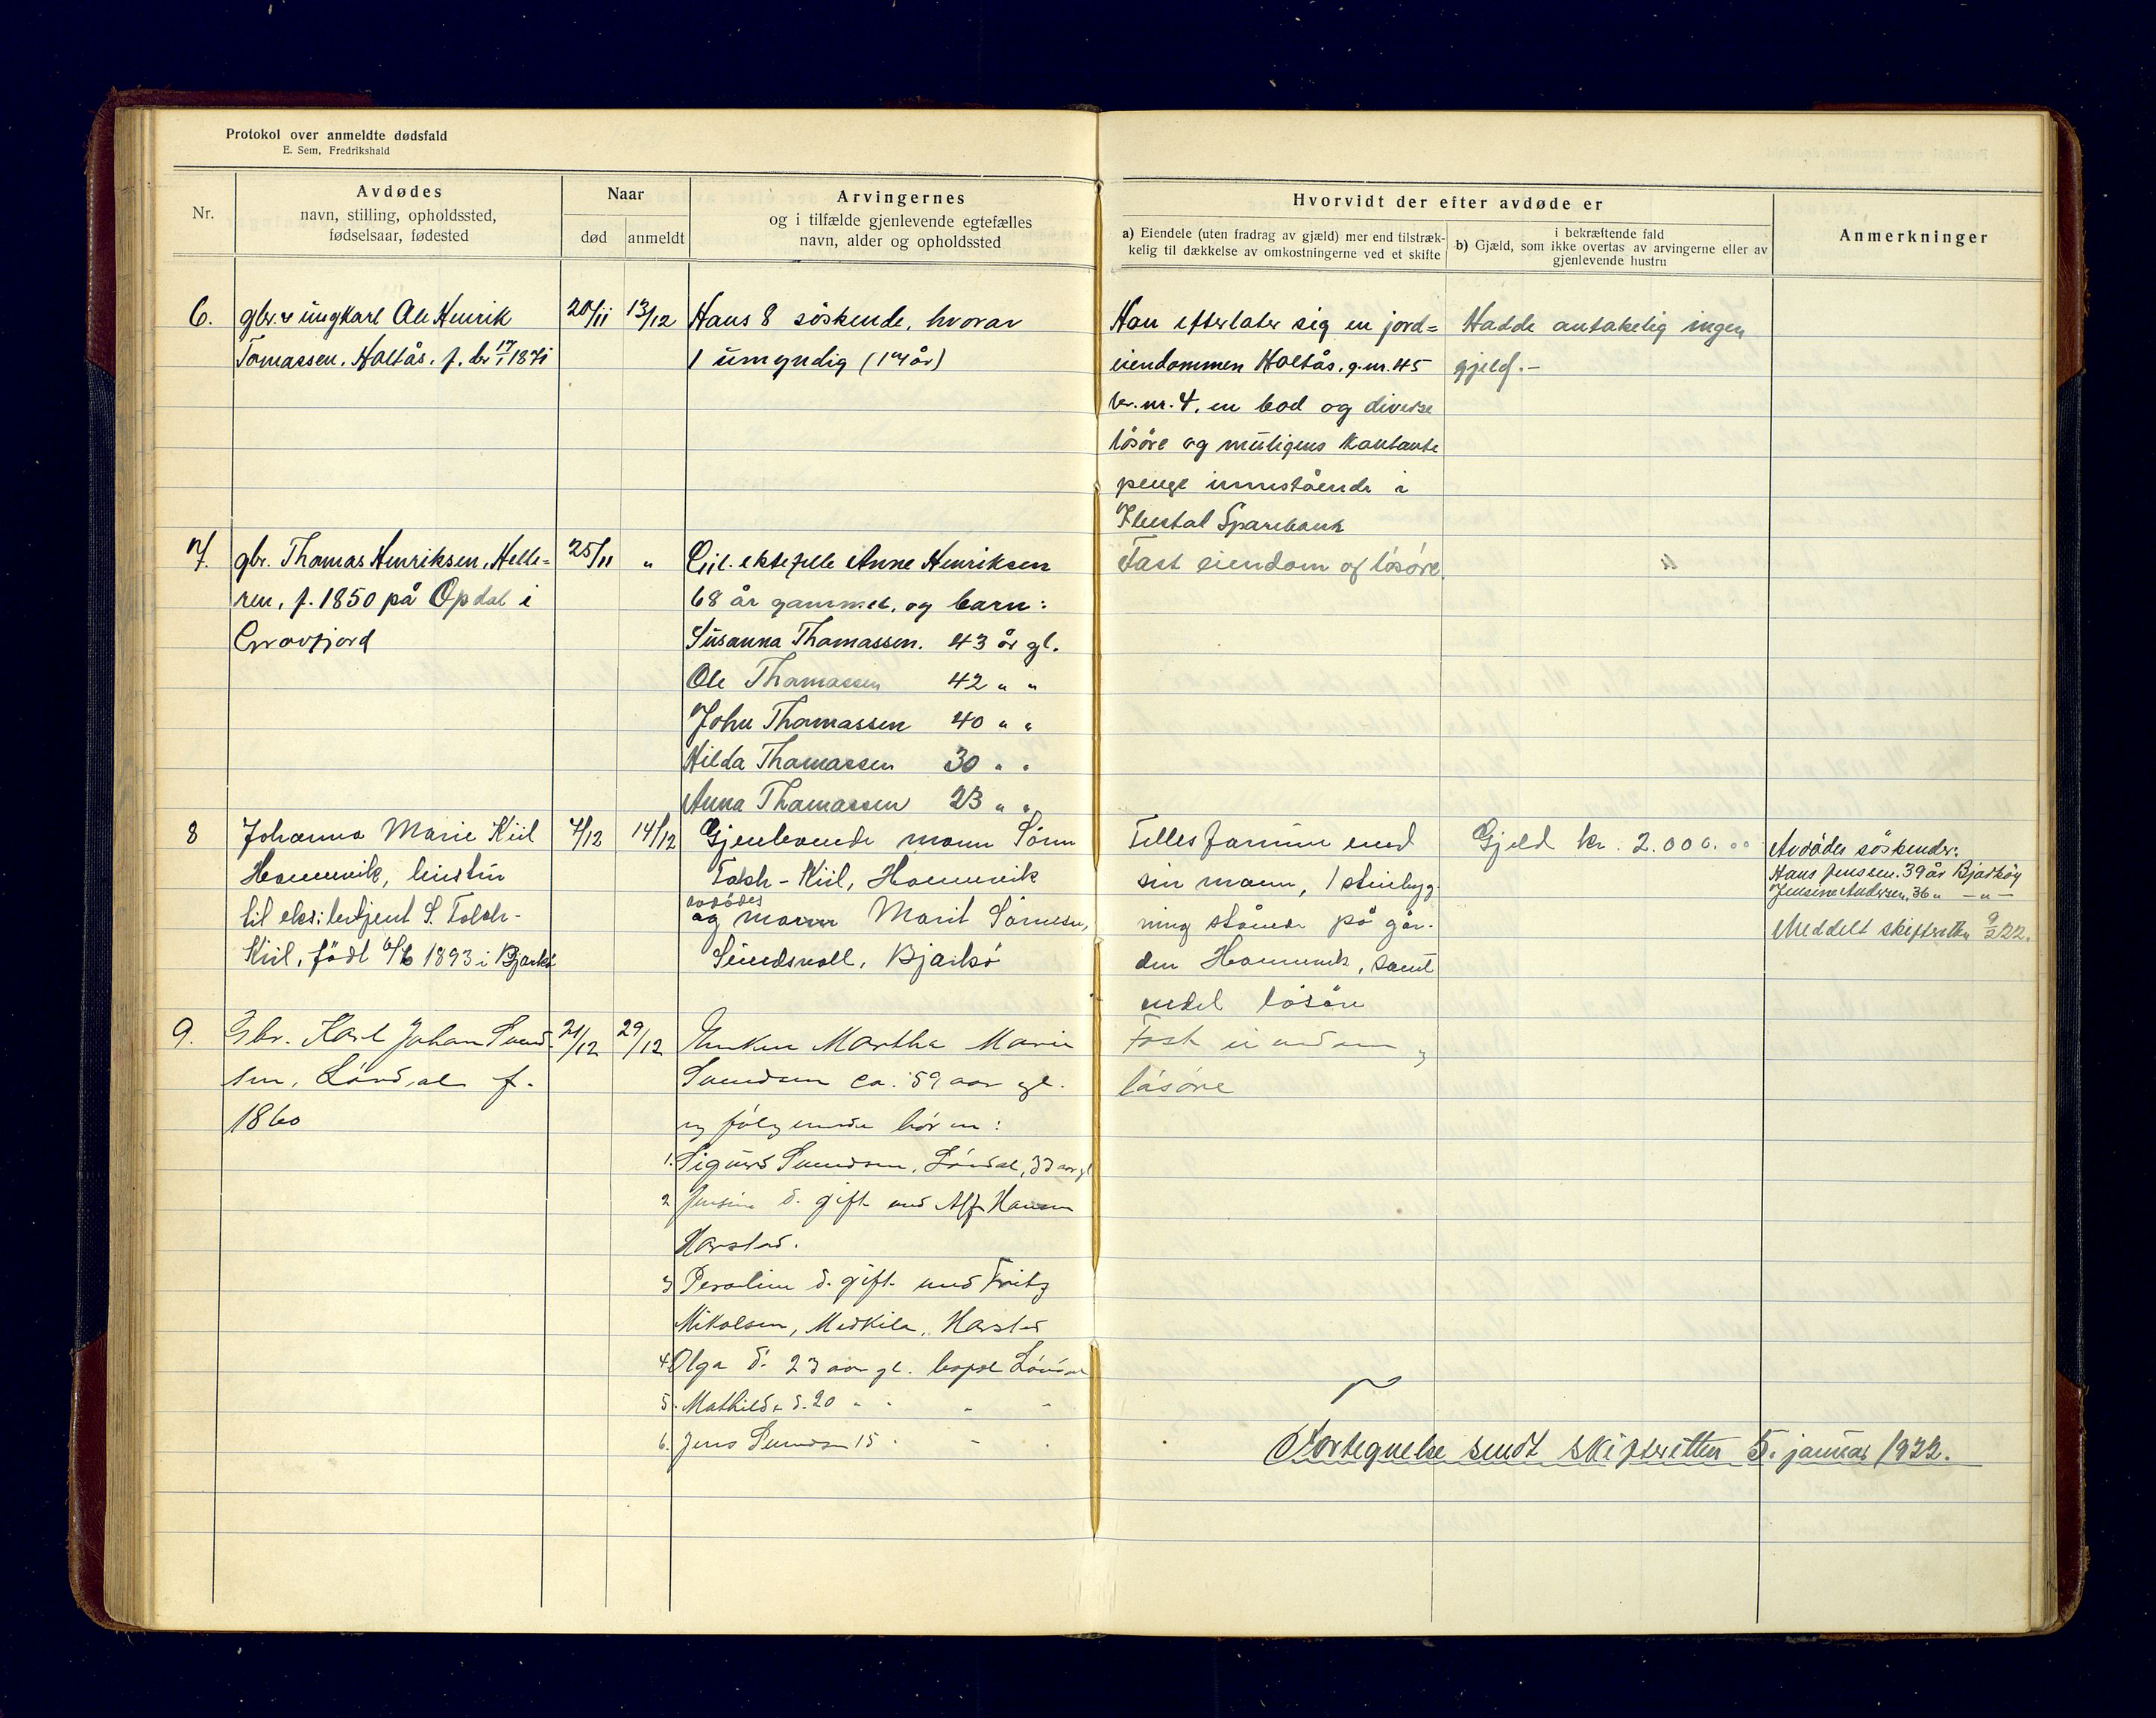 Protokol over anmeldte dødsfald
E. Sem, Fredrikshald
Nr.
Avdødes
navn, stilling, opholdssted,
fødselsaar, fødested
Naar
død
anmeldt
Arvingernes
og i tilfælde gjenlevende egtefælles
navn, alder og opholdssted
Hvorvidt der efter avdøde er
a) Eiendele (uten fradrag av gjæld) mer end tilstræk-
kelig til dækkelse av omkostningerne ved et skifte
i bekræftende fald
b) Gjæld, som ikke overtas av arvingerne eller av
gjenlevende hustru
Anmerkninger
6.
gbr. ungkarl Ole Henrik
Tomassen. Holtås. f. 17/1 1871
20/11
13/12
Hans 8 søskende, hvorav
1 umyndig (17 år)
Han efterlater sig en jord=
eiendommen Holtås, g.nr. 45
br.nr. 4, en bod og diverse
løsøre og muligens kontante
penge innestående i
Ibestad Sparebank
Hadde antakelig ingen
gjeld.-
7.
gbr. Thomas Henriksen, Helle=
ren, f. 1850 på Opdal i
Grovfjord
25/11
"
Gjl. ektefelle Anne Henriksen
68 år gammel, og barn:
Susanna Thomassen. 43 år gl.
Ole Thomassen 42 " "
John Thomassen 40 " "
Hilda Thomassen 30 " "
Anna Thomassen 23 " "
Fast eiendom og løsøre.
"
8
Johanna Marie Kiil
Hamnvik, hustru
til eks.betjent S. Falch-
Kiil, født 6/6 1893 i Bjarkö
4/12
14/12
Gjenlevende mann Sören
Falch-Kiil, Hamnvik
avdødes
og mor Marit Sörensen,
Sundsvoll, Bjarkö
Fellesformue med
sin mann, 1 stenbyg-
ning stående på går-
den Hamnvik, samt
endel løsøre
Gjeld kr. 2.000.00
Avdødes søskende:
Hans Jenssen. 39 år Bjarköy
Jensine Andersen, 36 " — " —
Meddelt skifteretten 9/2 22.
9.
Gbr. Karl Johan Svend-
sen, Løvdal f.
1860
21/12
29/12
Enken Martha Marie
Svendsen ca. 59 aar gl.
og følgende børn:
1. Sigurd Svendsen, Løvdal, 33 aar gl
2 Jensine S. gift med Alf Hansen
Harstad.
3 Peroline S. gift med Fritz
Mikalsen, Medkila, Harstad
4 Olga S. 23 aar gl. bopæl Løvdal
5. Mathilde S. 20 " " " "
6. Jens Svendsen 15 " " "
Fast eiendom og
løsøre
Fortegnelse sendt skifteretten 5. januar 1922.